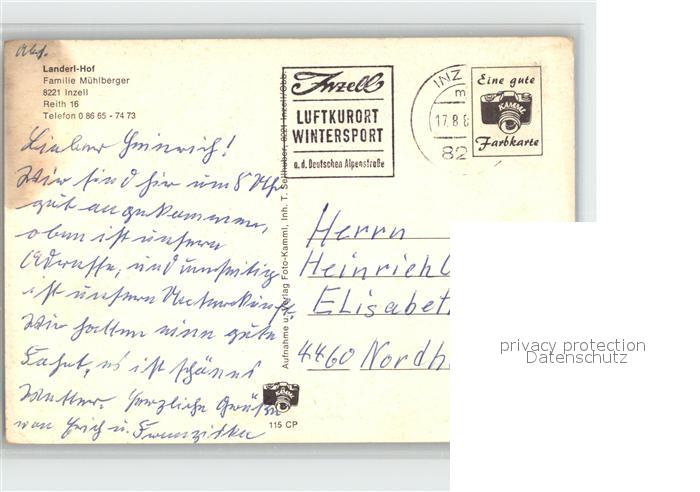 Abs.
Landerl-Hof
Familie Mühlberger
8221 Inzell
Reith 16
Telefon 0 86 65 - 74 73
Lieber Heinrich!
Wir sind hir um 8 Uhr
gut angekommen,
oben ist unsere
Adresse, und umseitig
ist unsere Unterkunft
Wir hatten eine gute
Fahrt, es ist schönes
Wetter. Herzliche Grüße
von Erich u. Franziska
Aufnahme u. Verlag Foto-Kamml, Inh. T. Selthuber, 8221 Inzell/Obb.
115 CP
Inzell
LUFTKURORT
WINTERSPORT
a.d. Deutschen Alpenstraße
INZ
17.8.8
82
Eine gute
KAMML
Farbkarte
Herrn
Heinrich
Elisabet
4460 Nordh
privacy protection
Datenschutz